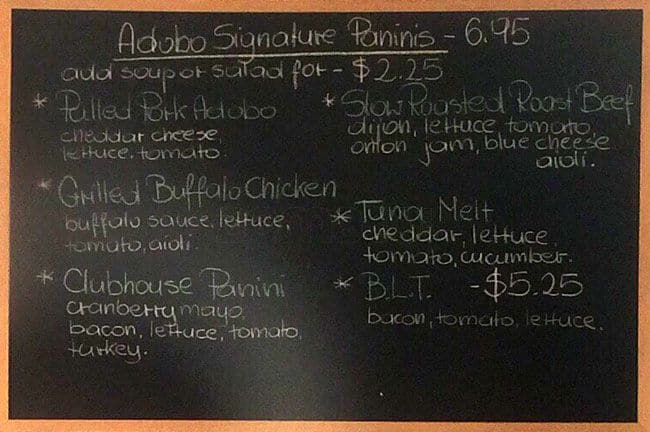 Adobo Signature Paninis - 6.95
add soup or salad for - $2.25
* Pulled Pork Adobo
cheddar cheese,
lettuce. tomato.
* Grilled Buffalo Chicken
buffalo sauce, lettuce,
tomato, aioli.
* Clubhouse Panini
cranberry mayo,
bacon, lettuce, tomato,
turkey.
* Slow Roasted Roast Beef
dijon, lettuce tomato,
onion jam, blue cheese
aioli.
* Tuna Melt
cheddar, lettuce,
tomato, cucumber.
* B.L.T. - $5.25
bacon, tomato, lettuce.